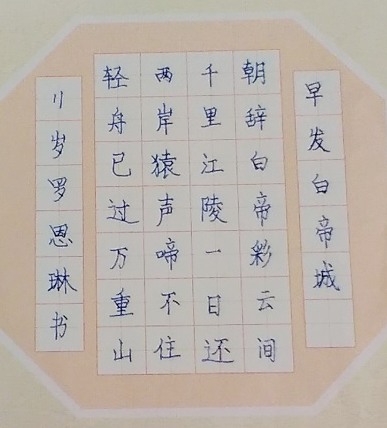 早发白帝城
朝辞白帝彩云间
千里江陵一日还
两岸猿声啼不住
轻舟已过万重山
11岁罗恩琳书